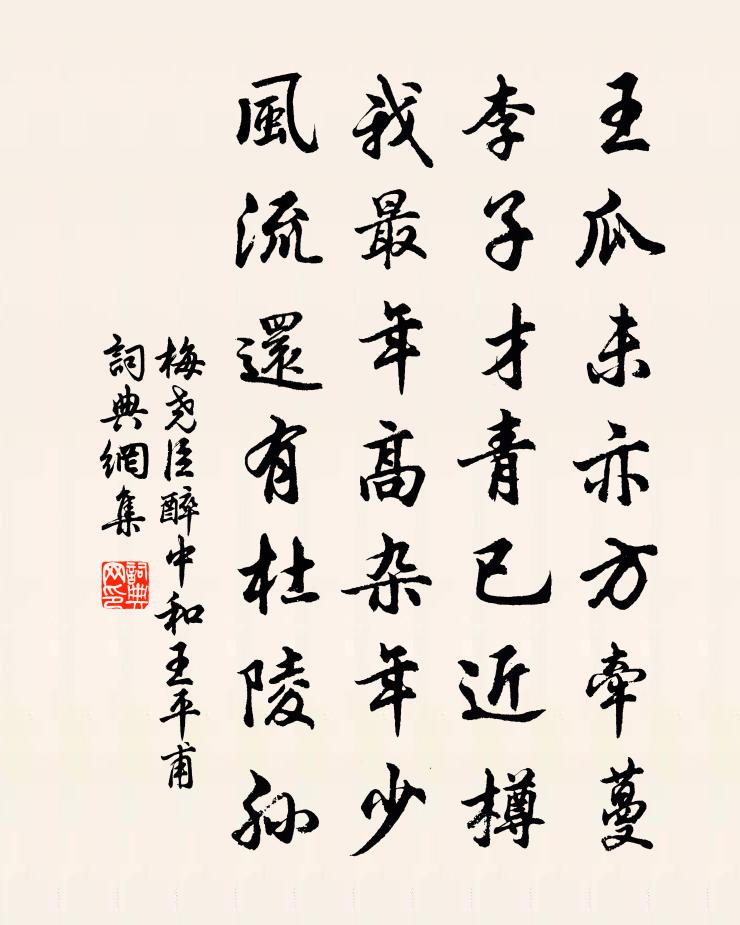 王瓜未亦方牽蔓
李子才青已近樽
我最年高杂年少
風流還有杜陵孙
梅尧臣醉中和王平甫
詞典網集
詞典网印